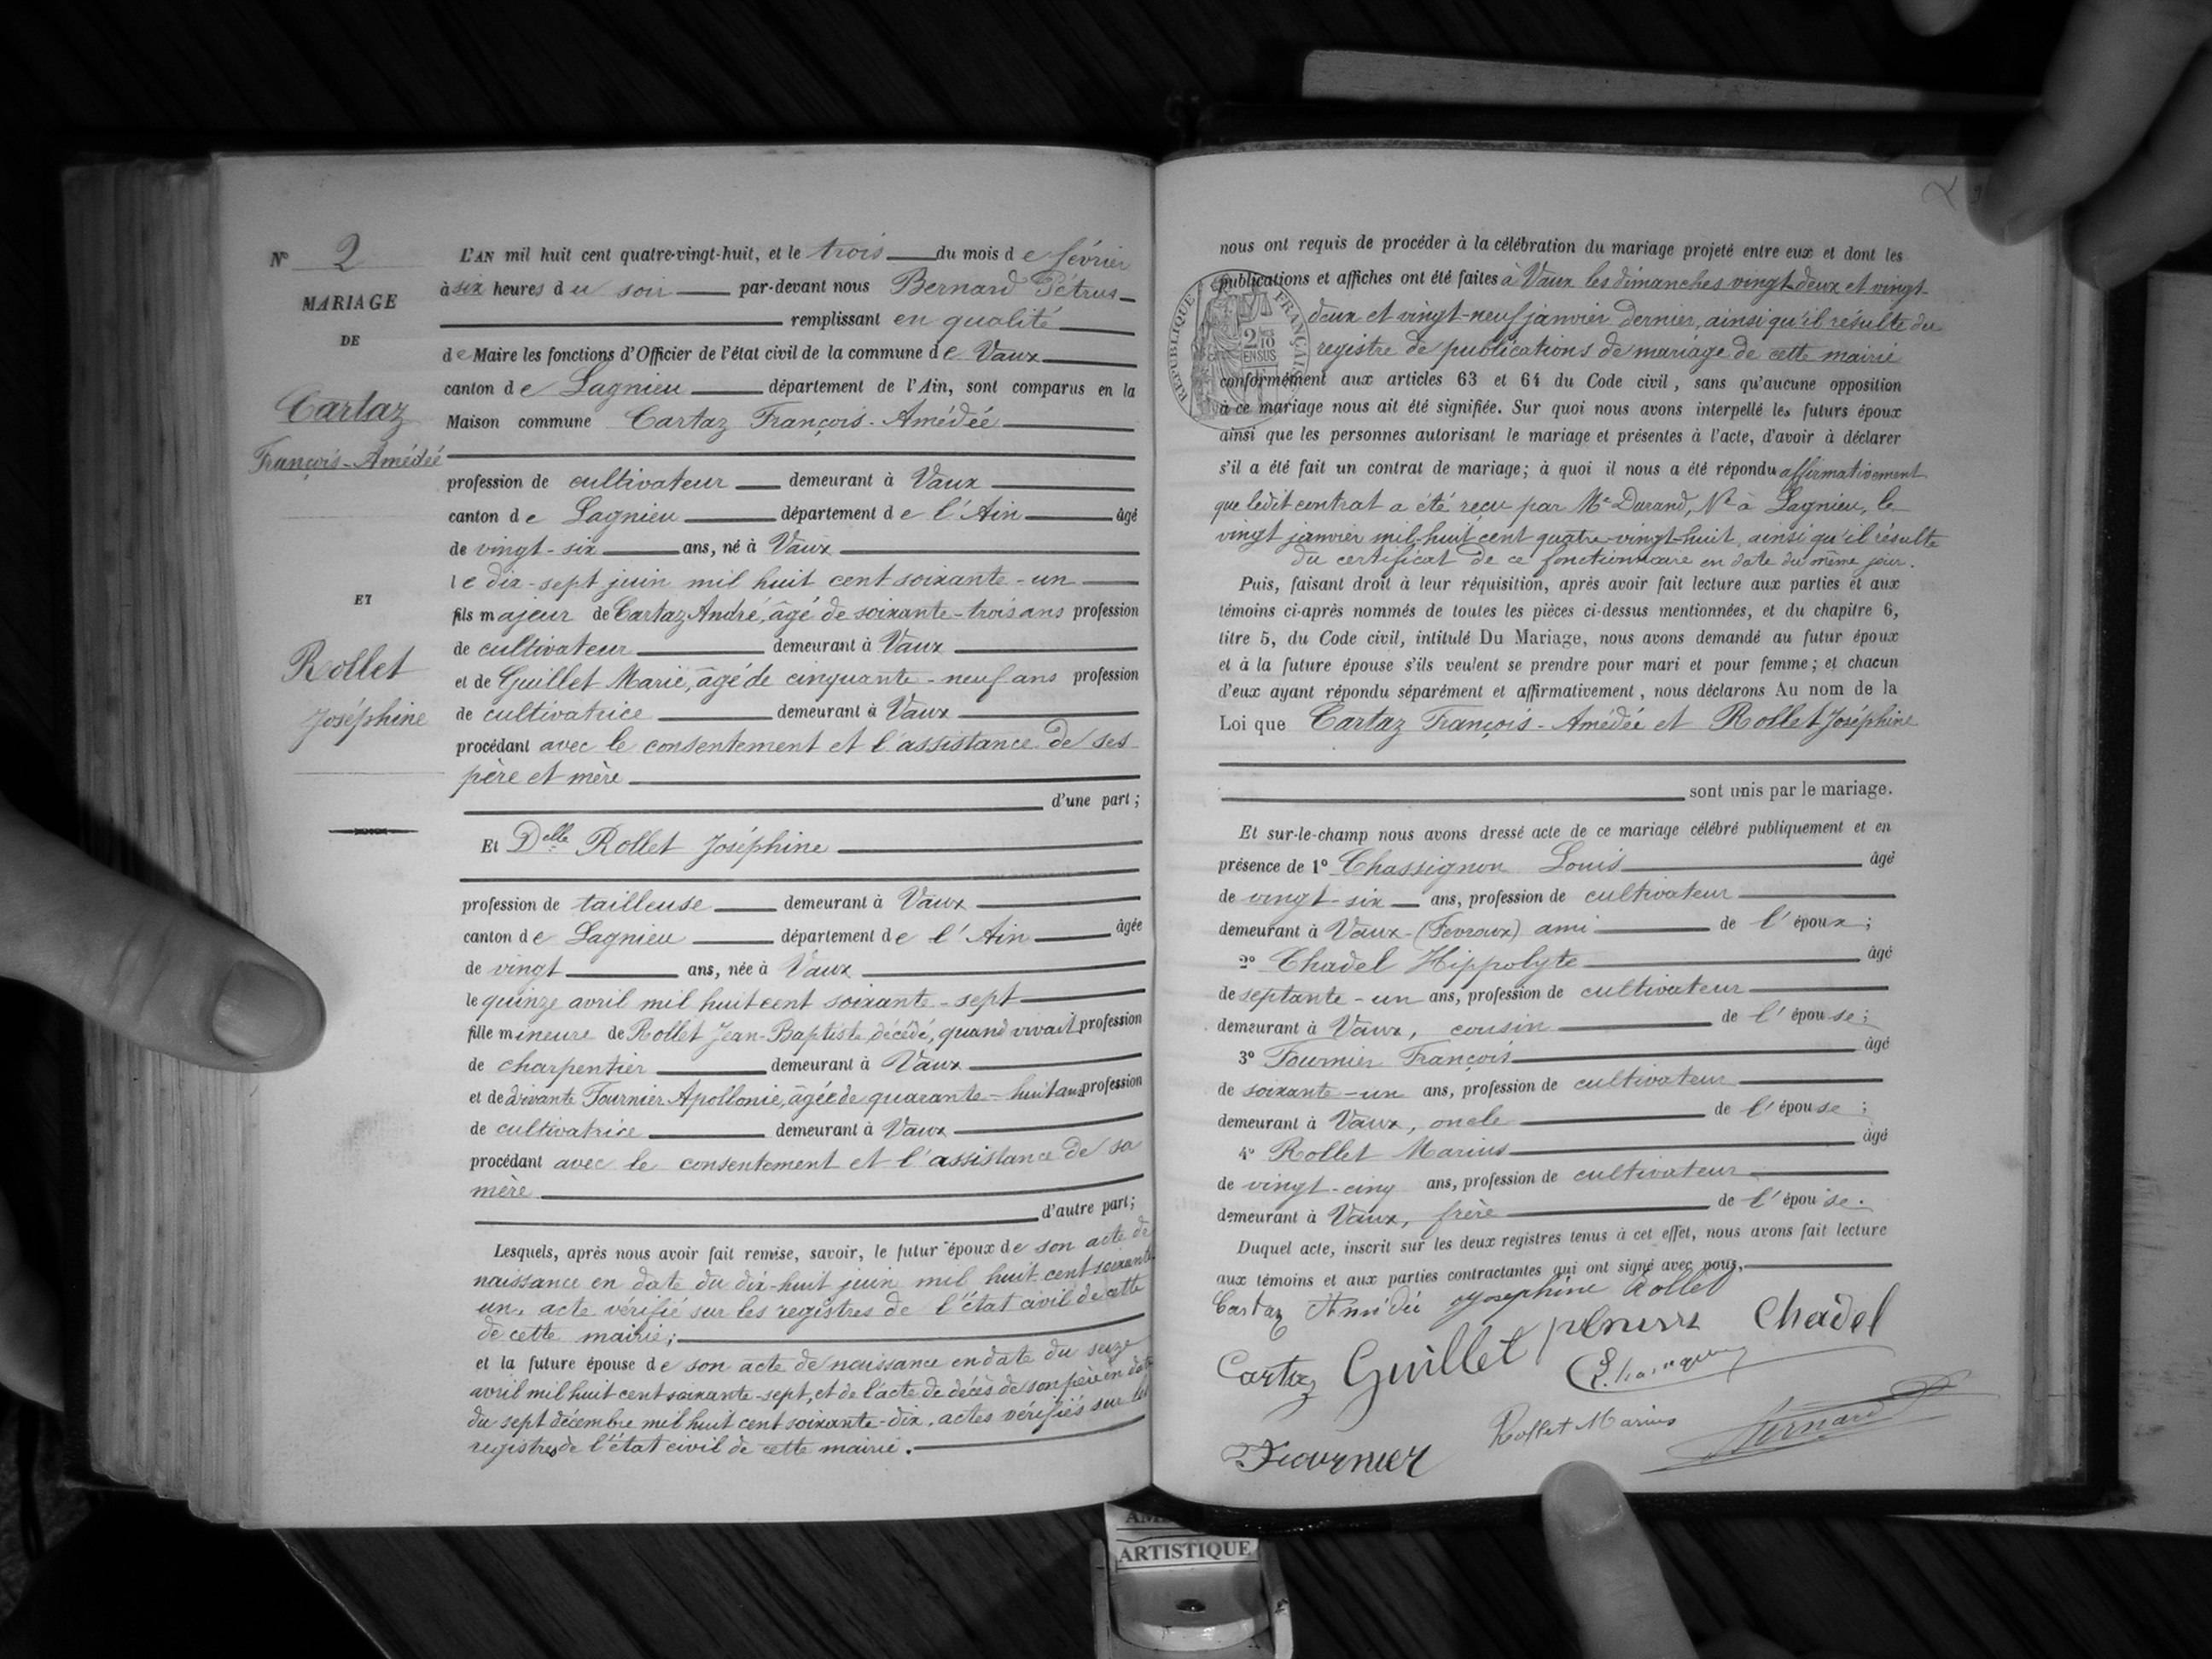 N° 2
MARIAGE
DE
Cartaz
François-Amédée
ET
Rollet
Joséphine
L'AN mil huit cent quatre-vingt-huit, et le trois du mois de février
à six heures du soir par-devant nous Bernard Pétrus
remplissant en qualité
de Maire les fonctions d'Officier de l'état civil de la commune de Vaux
canton de Lagnieu département de l'Ain, sont comparus en la
Maison commune Cartaz François-Amédée
profession de cultivateur demeurant à Vaux
canton de Lagnieu département de l'Ain âgé
de vingt-six ans, né à Vaux
le dix-sept juin mil huit cent soixante-un
fils majeur de Cartaz André, âgé de soixante-trois ans profession
de cultivateur demeurant à Vaux
et de Guillet Marie, âgé de cinquante-neuf ans profession
de cultivatrice demeurant à Vaux
procédant avec le consentement et l'assistance de ses
père et mère
d'une part;
Et Delle Rollet Joséphine
profession de tailleuse demeurant à Vaux
canton de Lagnieu département de l'Ain âgée
de vingt ans, née à Vaux
le quinze avril mil huit cent soixante-sept
fille mineure de Rollet Jean-Baptiste, décédé, quand vivait profession
de charpentier demeurant à Vaux
et de vivante Fournier Apollonie, âgée de quarante-huit ans profession
de cultivatrice demeurant à Vaux
procédant avec le consentement et l'assistance de sa
mère
d'autre part;
Lesquels, après nous avoir fait remise, savoir, le futur époux de son acte de
naissance en date du dix-huit juin mil huit cent soixante
un, acte vérifié sur les registres de l'état civil de cette
de cette mairie;
et la future épouse de son acte de naissance en date du seize
avril mil huit cent soixante-sept, et de l'acte de décès de son père en date
du sept décembre mil huit cent soixante-dix, actes vérifiés sur les
registres de l'état civil de cette mairie.
nous ont requis de procéder à la célébration du mariage projeté entre eux et dont les
publications et affiches ont été faites à Vaux les dimanches vingt-deux et vingt-
deux et vingt-neuf janvier dernier, ainsi qu'il résulte du
registre de publications de mariage de cette mairie
RÉPUBLIQUE FRANÇAISE
2/10 EN SUS
conformément aux articles 63 et 64 du Code civil, sans qu'aucune opposition
à ce mariage nous ait été signifiée. Sur quoi nous avons interpellé les futurs époux
ainsi que les personnes autorisant le mariage et présentes à l'acte, d'avoir à déclarer
s'il a été fait un contrat de mariage; à quoi il nous a été répondu affirmativement
que ledit contrat a été reçu par Me Durand, Nre à Lagnieu, le
vingt janvier mil-huit cent quatre-vingt-huit, ainsi qu'il résulte
du certificat de ce fonctionnaire en date du même jour.
Puis, faisant droit à leur réquisition, après avoir fait lecture aux parties et aux
témoins ci-après nommés de toutes les pièces ci-dessus mentionnées, et du chapitre 6,
titre 5, du Code civil, intitulé Du Mariage, nous avons demandé au futur époux
et à la future épouse s'ils veulent se prendre pour mari et pour femme; et chacun
d'eux ayant répondu séparément et affirmativement, nous déclarons Au nom de la
Loi que Cartaz François-Amédée et Rollet Joséphine
sont unis par le mariage.
Et sur-le-champ nous avons dressé acte de ce mariage célébré publiquement et en
présence de 1° Chassignon Louis âgé
de vingt-six ans, profession de cultivateur
demeurant à Vaux-(Fevroux) ami de l'époux;
2° Chadel Hippolyte âgé
de septante-un ans, profession de cultivateur
demeurant à Vaux, cousin de l'épouse;
3° Fournier François âgé
de soixante-un ans, profession de cultivateur
demeurant à Vaux, oncle de l'épouse;
4° Rollet Marius âgé
de vingt-cinq ans, profession de cultivateur
demeurant à Vaux, frère de l'épouse.
Duquel acte, inscrit sur les deux registres tenus à cet effet, nous avons fait lecture
aux témoins et aux parties contractantes qui ont signé avec nous,
Cartaz Amédée Josephine Rollet
Cartaz Guillet Chadel
Fournier Rollet Marius Bernard
ARTISTIQUE